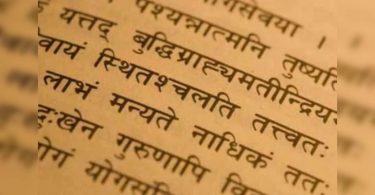 गसेवया ।
पश्यन्नात्मनि तुष्यति
यत्तद् बुद्धिग्राह्यमतीन्द्रिय
वायं स्थितश्चलति तत्त्वतः
लाभं मन्यते नाधिकं ततः
दुःखेन गुरुणापि वि
योगं